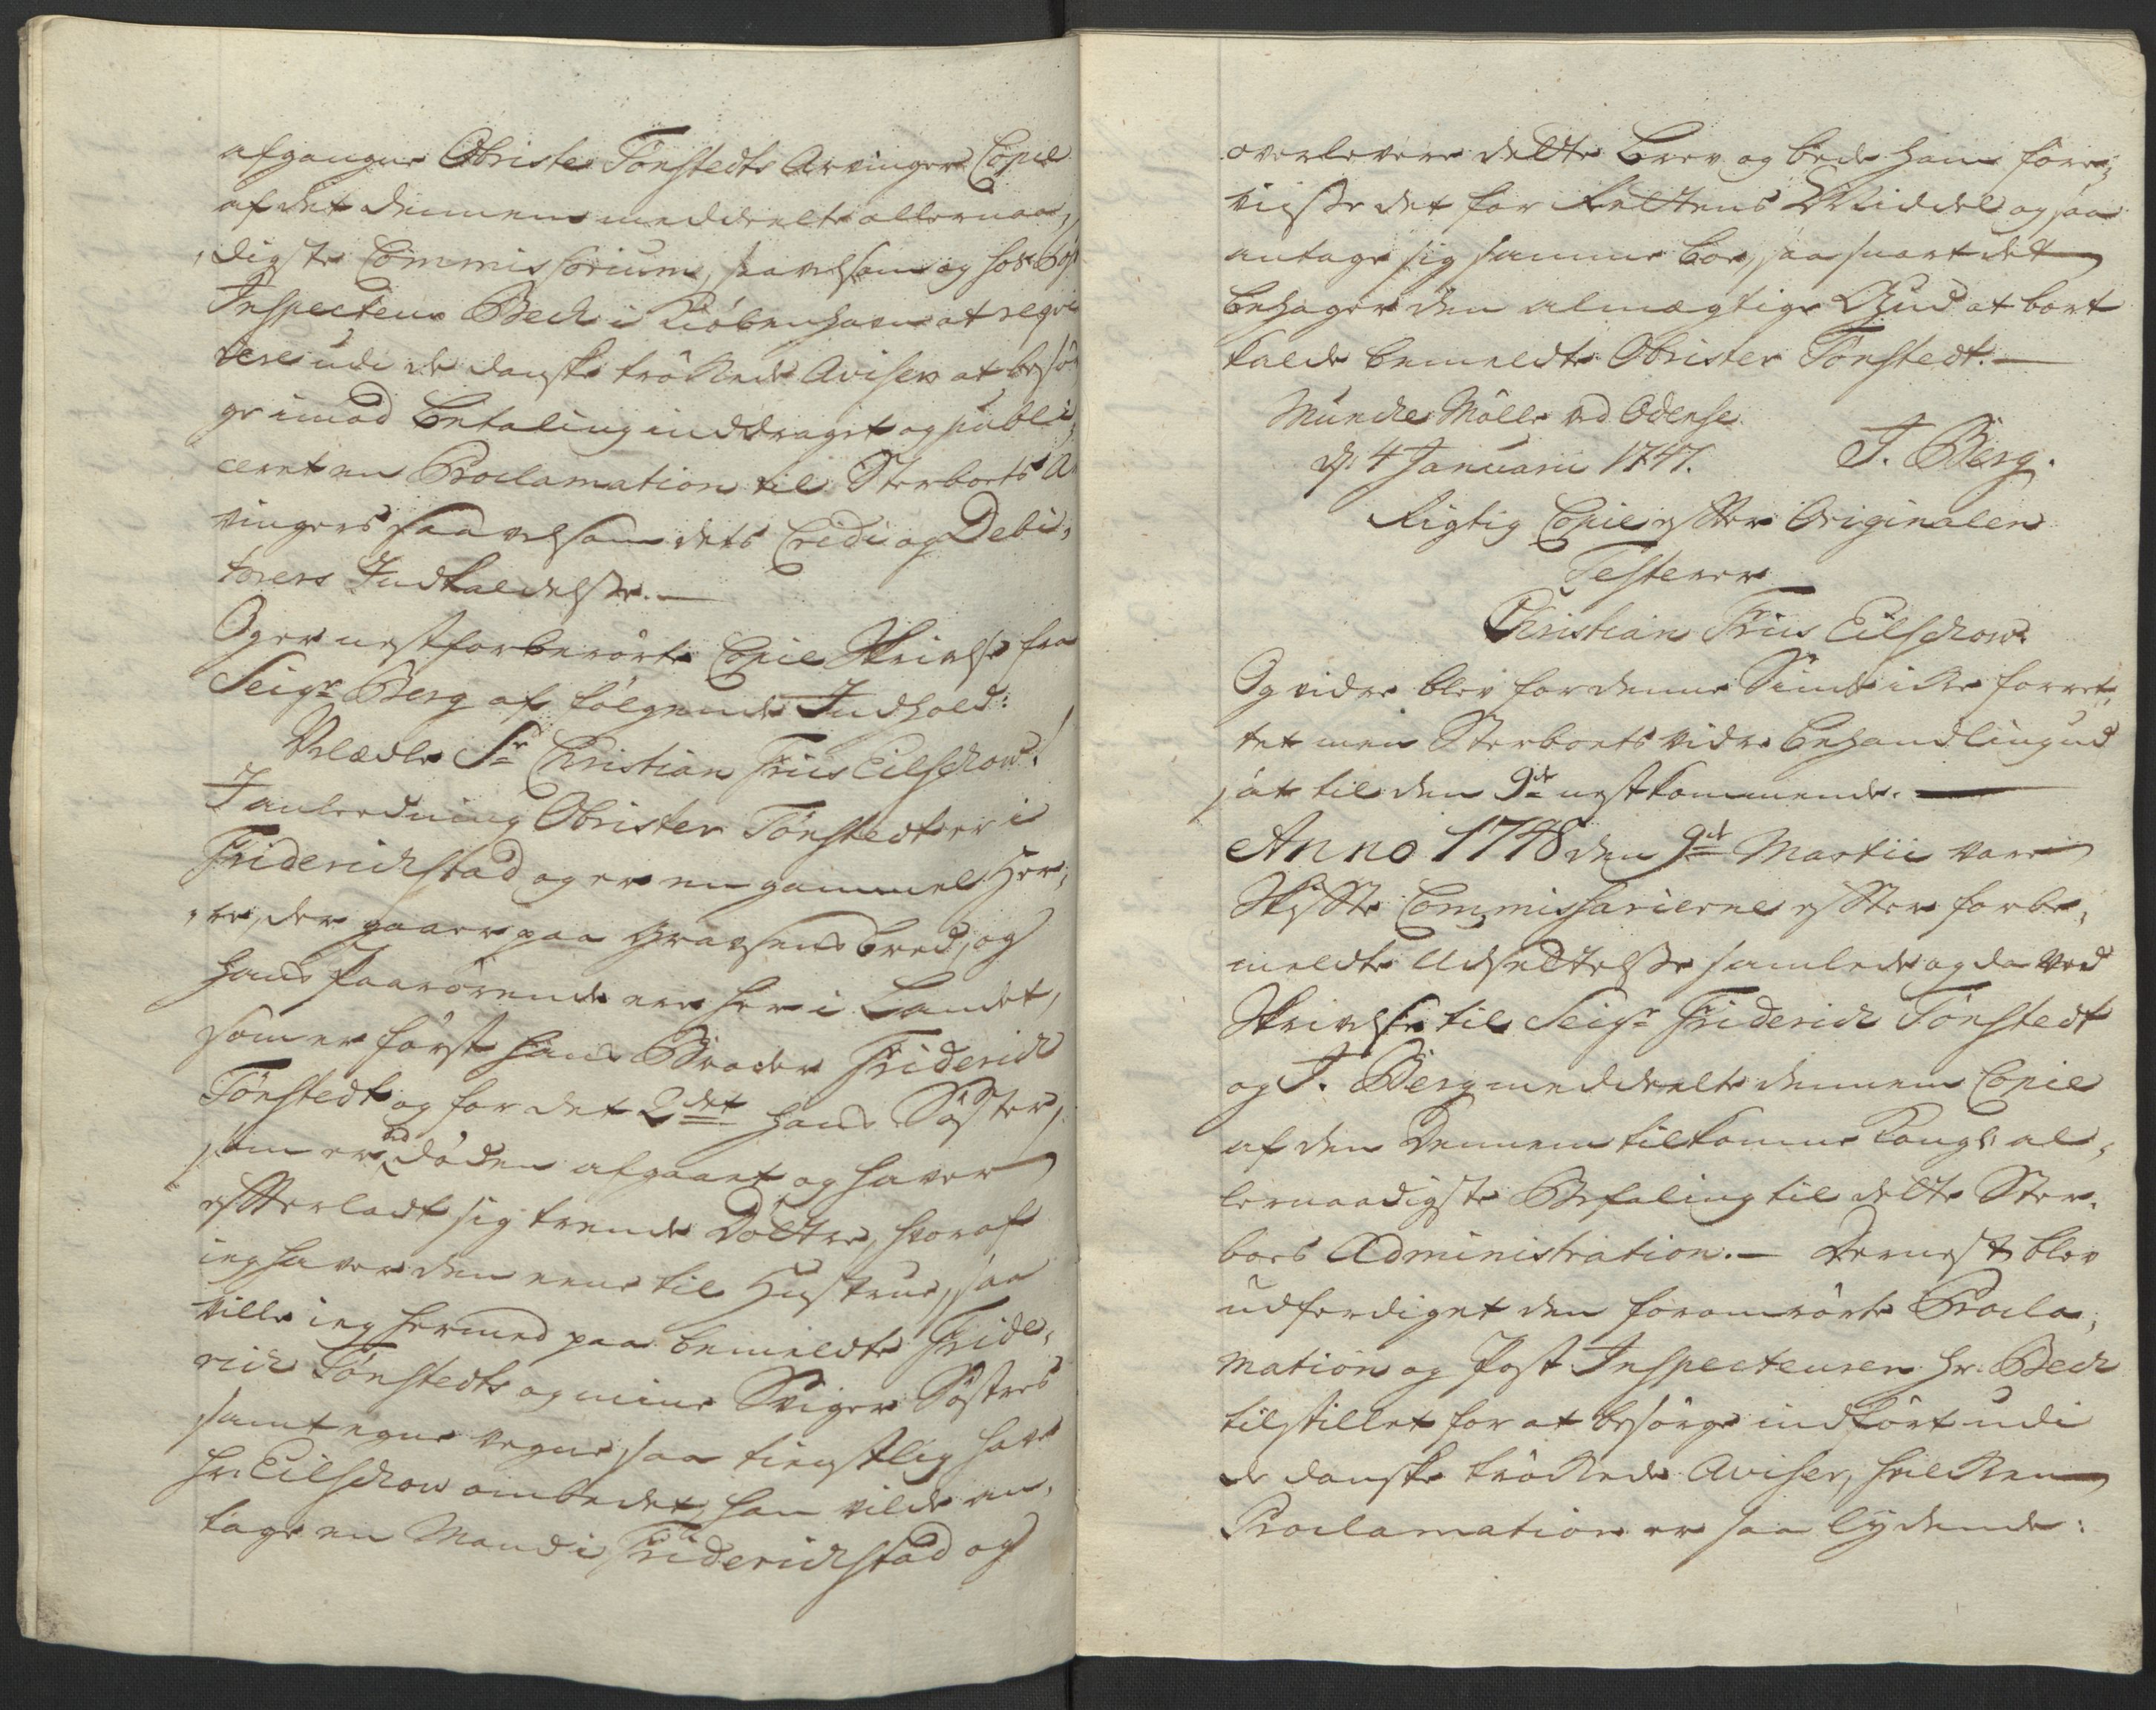 afgangne Obriste Tønstedts Arvinger Copie
af det dennem meddeelte allernaa,
digste Commissorium, saavelsom og hos
Inspecteur Beck i Kiøbenhavn at reqvi
rere udi de danske trøkkede Aviser at besør
ge imod Betaling inddraget og publi,
ceret en Proclamation til Sterboets Ar
vingers saavelsom dets Credi og Debi,
torers Indkaldelsse.
Og er nestforberørte Copie Skrivelse fra
Seigr Berg af følgende Indhold:
Velædle Sr Christian Friis Eilschow!
I anledning Obrister Tønstedt er i
Friderichstad og er en gammel Her,
re, der gaaer paa Gravsens Bred, og
hans Paarørende ere her i Landet,
som er først hans Broder Friderich
Tønstedt og for det 2det hans Søster,
som er ved døden afgaaet og haver
effterladt sig trende Døttre, hvoraf
ieg haver den eene til Hustrue, saa
ville ieg hermed paa bemeldte Fride,
rich Tønstedts og mine Sviger Søstres
samt egne vegne saa tienstlig have
Hr. Eilschow ombedet, han vilde an,
tage en Mand i Friderichstad og
overlevere dette Brev og bede ham fore,
viisse det for Rettens Middel og saa
antage sig samme Boe, saa snart det
behager den almægtige Gud at bort
kalde bemeldte Obrister Tønstedt.
Muncke Mølle ved Odense
d. 4 Januarii 1747. T. Berg.
Rigtig Copie effter Originalen
Testerer
Christian Friis Eilschow.
Og vidre blev for denne Sinde ikke forret,
tet men Sterboets vidre Behandling ud
sat til den 9de nestkommende.
Anno 1748 den 9de Martii vare
Skiffte Commissarierne effter forbe,
meldte Udsettelsse samlede og da ved
Skrivelse til Seigr Friderich Tønstedt
og T. Berg meddeelte dennem Copie
af den Dennem tilkomne Kongl: al,
lernaadigste Befaling til dette Ster,
boes Administration. Dernest blev
udferdiget den foromrørte Procla,
mation og Post Inspecteuren Hr. Beck
tilstillet for at besørge indført udi
de danske trøkkede Aviser, hvilken
Proclamation er saa lydende: